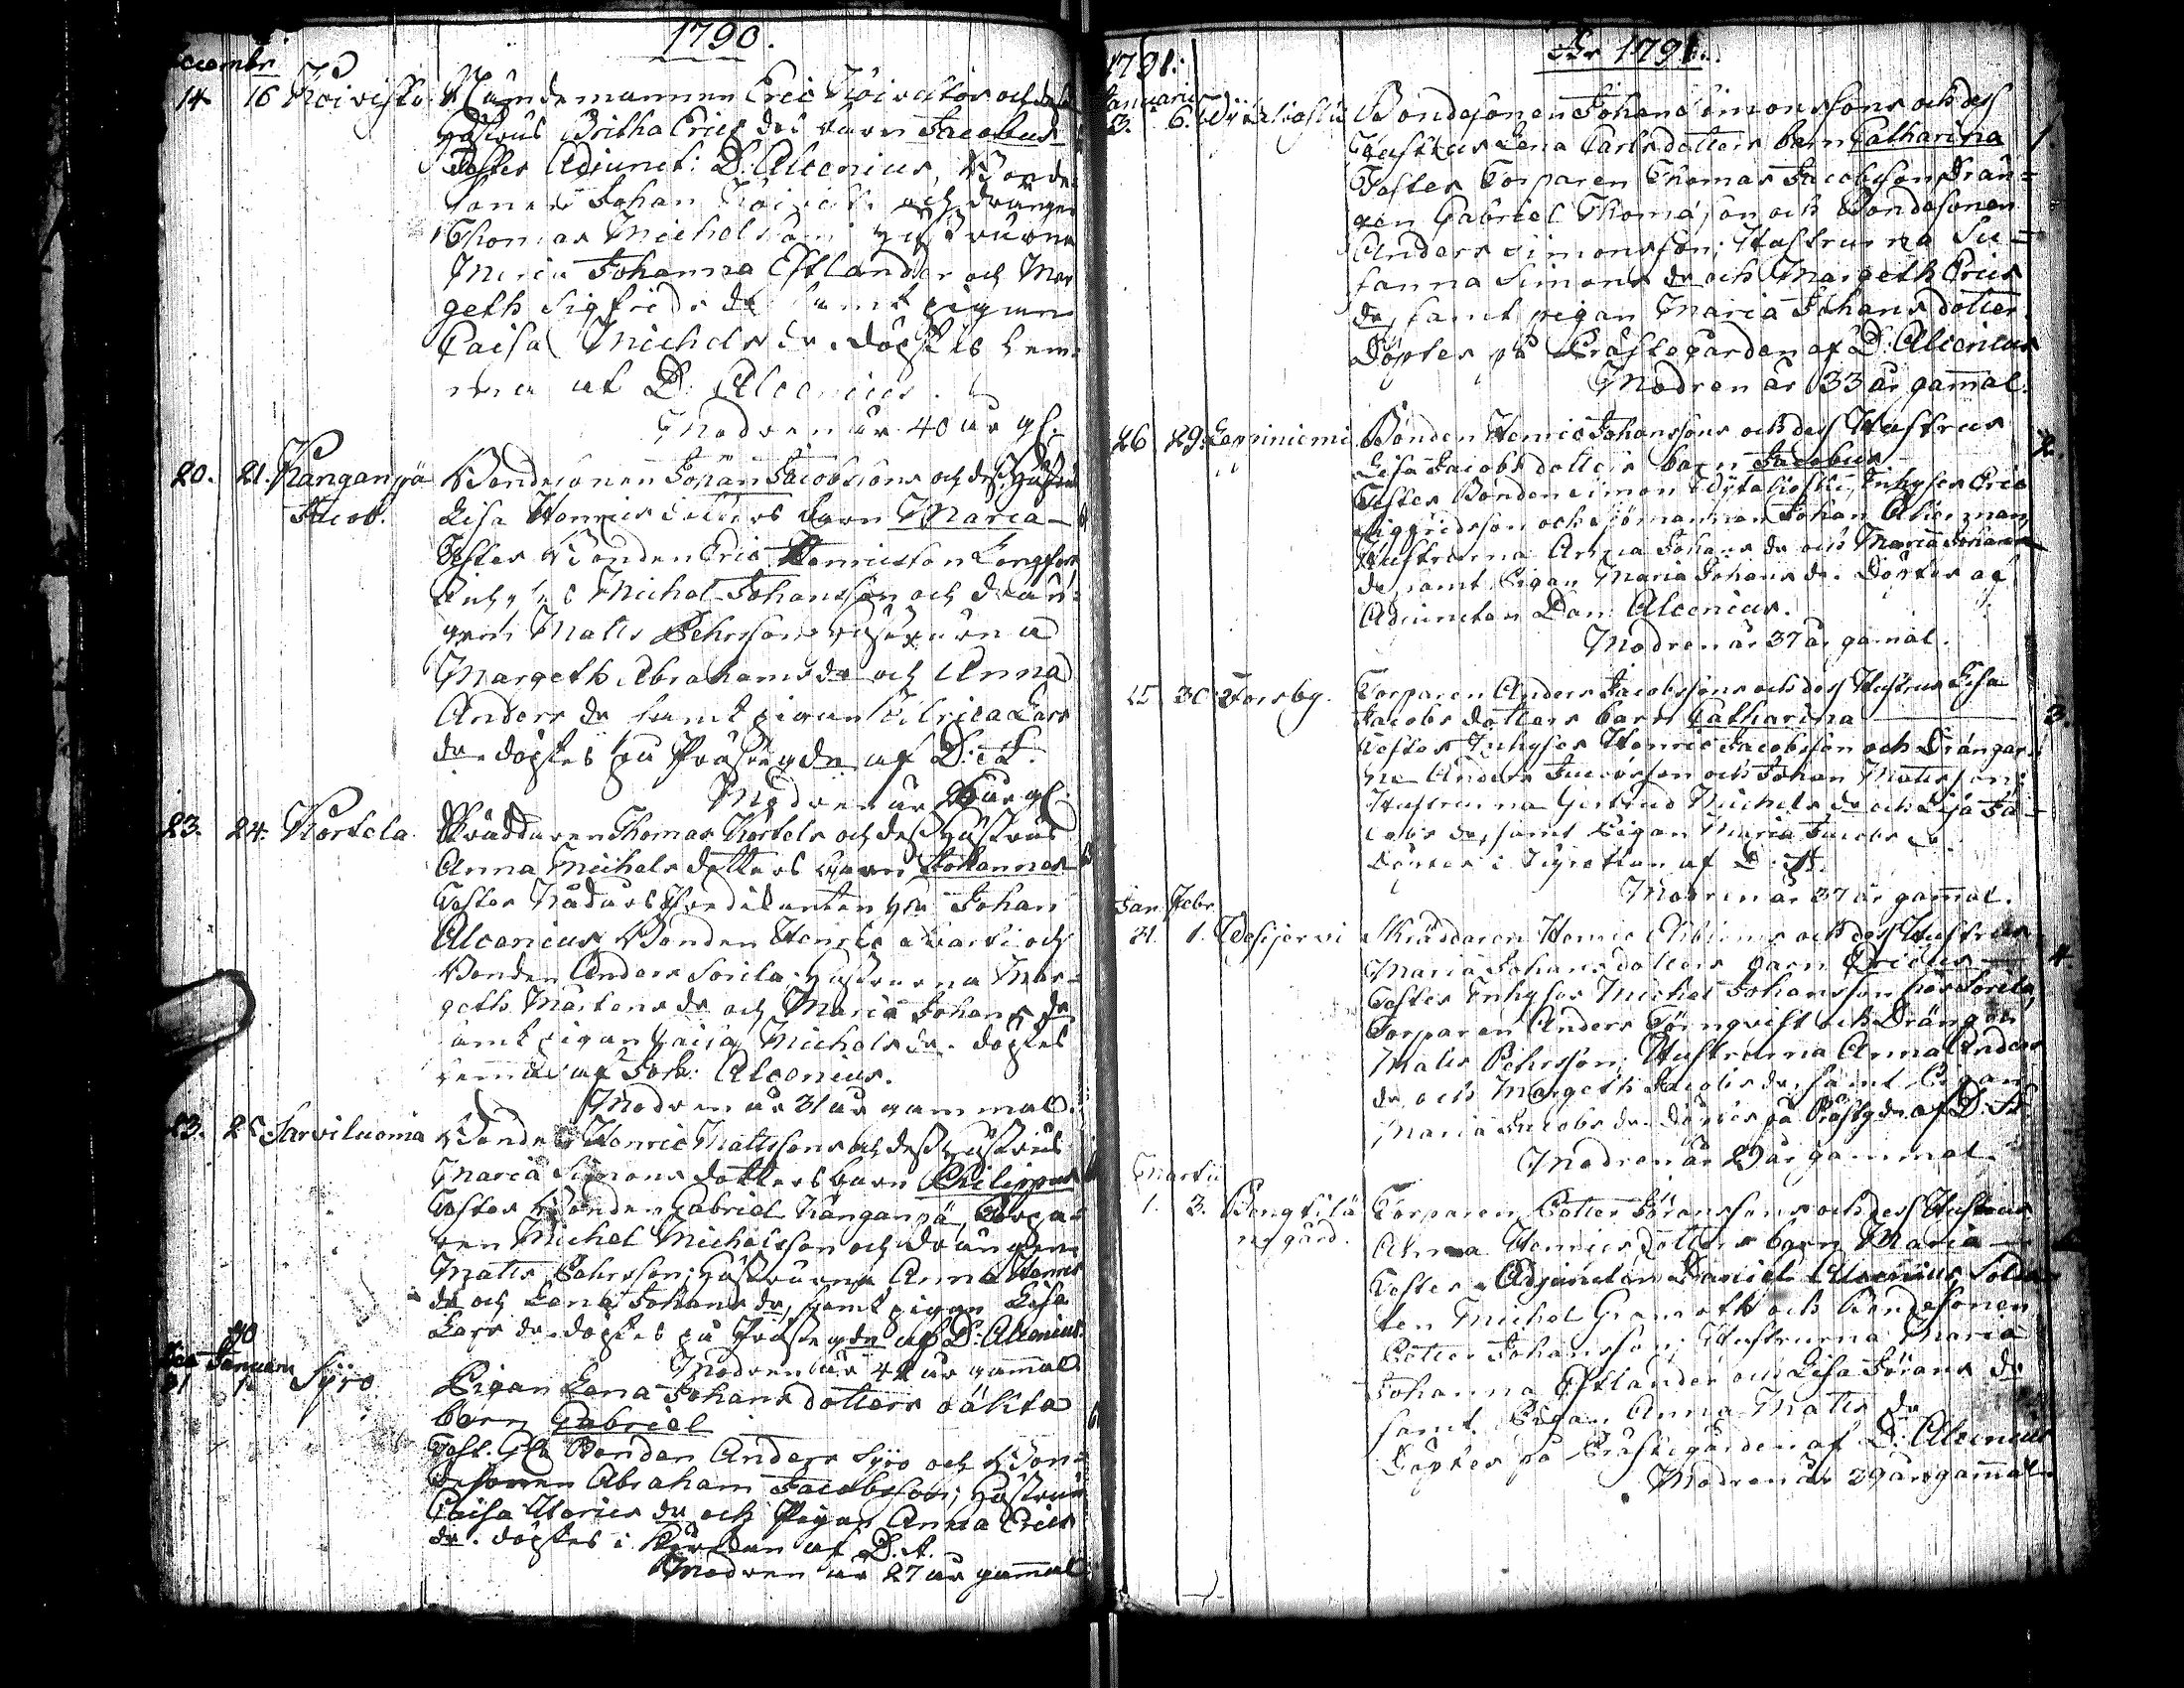 1790.
Decembr
14. 16 Koivisto Nämdemannen Eric Koivistos och dess
hustrus Britha Erics drs barn Jacobus
Testes Adjunct: D: Alcenius, Bonde
sonen Johan och drängen
Thomas Michelsson hustrurna
Maria Johanna Estlander och Mar
geth Sigfrids dr samt pigan
Caisa Michels dr. döptes hem-
ma af D: Alcenius.
Modren är 40 år gl.
20. 21. Kanganpä Bondesonen Johan Jacobssons och dess hustrus
Jacob. Lisa Henrics dotters barn Maria
Testes Bonden Eric Henricsson
Inhyses Michel Johansson och drän-
gen Matts Pehrsson, hustrurna
Margeth Abrahams dr och Anna
Anders dr samt pigan Ulrica Lars
dr. döptes på Prästegdn af D: A.
Modren är år gl.
23. 24. Kortela Skräddaren Thomas Kortels och dess hustrus
Anna Michels dotters barn Johannes
Testes Nådårs Predikanten Hr Johan
Alcenius, Bonden Henric och
Bonden Anders Sorila; hustrurna Mar-
geth Mårtens dr och Maria Johans dr
samt pigan Caisa Michels dr. döptes
hemma af Joh: Alcenius.
Modren är 31 år gammal.
23. 25 Sarviluoma Bonden Henric Mattssons och dess hustrus
Maria Simons dotters barn Philippus
Testes Bonden Gabriel Kanganpä, Torpa-
ren Michel Michelsson och drängen
Matts Pehrsson; hustrurna Anna Henrics
dr och Lena Johans dr, samt pigan Lisa
Lars dr. döptes på Prästegdn af D: Alcenius.
Modren är år gammal.
Dec Januarii
31 1. Syro Pigan Lena Johans dotters oäkta
barn Gabriel
Test. Gla Bonden Anders Syro och Bon-
desonen Abraham Jacobsson; hustrun
Caisa Henrics dr och Pigan Anna Erics
dr. döptes i Kyrckan af D. A.
Modren är 27 år gammal.
1791. År 1791.
Januarii
3. 6. Bondesonen Johan Simonssons och dess
Hustrus Lena Carlsdotters barn Catharina 1.
Testes Torparen Thomas Jacobsson Drän-
gen Gabriel Thomasson och Bondesonen
Anders Simonsson; Hustrurna Su-
sanna Simons dr och Margeth Erics
dr, samt pigan Maria Johans dotter.
Döptes på Prästegården af D: Alcenius
Modren är 33 år gammal.
26 29. Lapiniemi Bonden Henric Johanssons och dess Hustrus 2.
Lisa Jacobs dotters barn Jacobus
Testes Bonden Simon Inhyses Eric
Sigfridsson och sjömannen Johan Åkerman,
Hustrurna Anna Johans dr och Maria Johans
dr, samt Pigan Maria Johans dr. Döptes af
Adjuncten Dan: Alcenius.
Modren är 37 år gamal.
25 30. Forsby. Torparen Anders Jacobssons och dess Hustrus Lisa
Jacobs dotters barn Catharina 3.
Testes Inhyses Henric Jacobsson och Drängar-
ne Anders Jacobsson och Johan Mattsson;
Hustrurna Gertrud Michels dr och Lisa Ja-
cobs dr, samt Pigan Maria Jacobs dr.
Döptes i af D: A.
Modren är 37 år gammal.
Jan. Febr.
31. 1. Wesijervi Skräddaren Henric och dess Hustrus
Maria Johans dotters barn Ericus 4.
Testes Inhyses Michel Johansson hos Sorila,
Torparen Anders Törnqvist och Drängen
Matts Pehrsson; Hustrurna Anna Anders
dr och Margeth Jacobs dr, samt Pigan
Maria Jacobs dr. Döptes på Prästgdn af D: A.
Modren är 29 år gammal.
Martii
1. 3. Bengtilä Torparen Petter Göranssons och dess Hustrus
nygård. Anna Henrics dotters barn Maria
Testes Adjuncten Daniel Alcenius, Solda-
ten Michel och Bondesonen
Petter Johansson; Hustrurna Maria
Johanna Estlander och Lisa Görans dr
samt Pigan Anna Matts dr
Döptes på Prästegården af D: Alcenius
Modren är 39 år gammal.